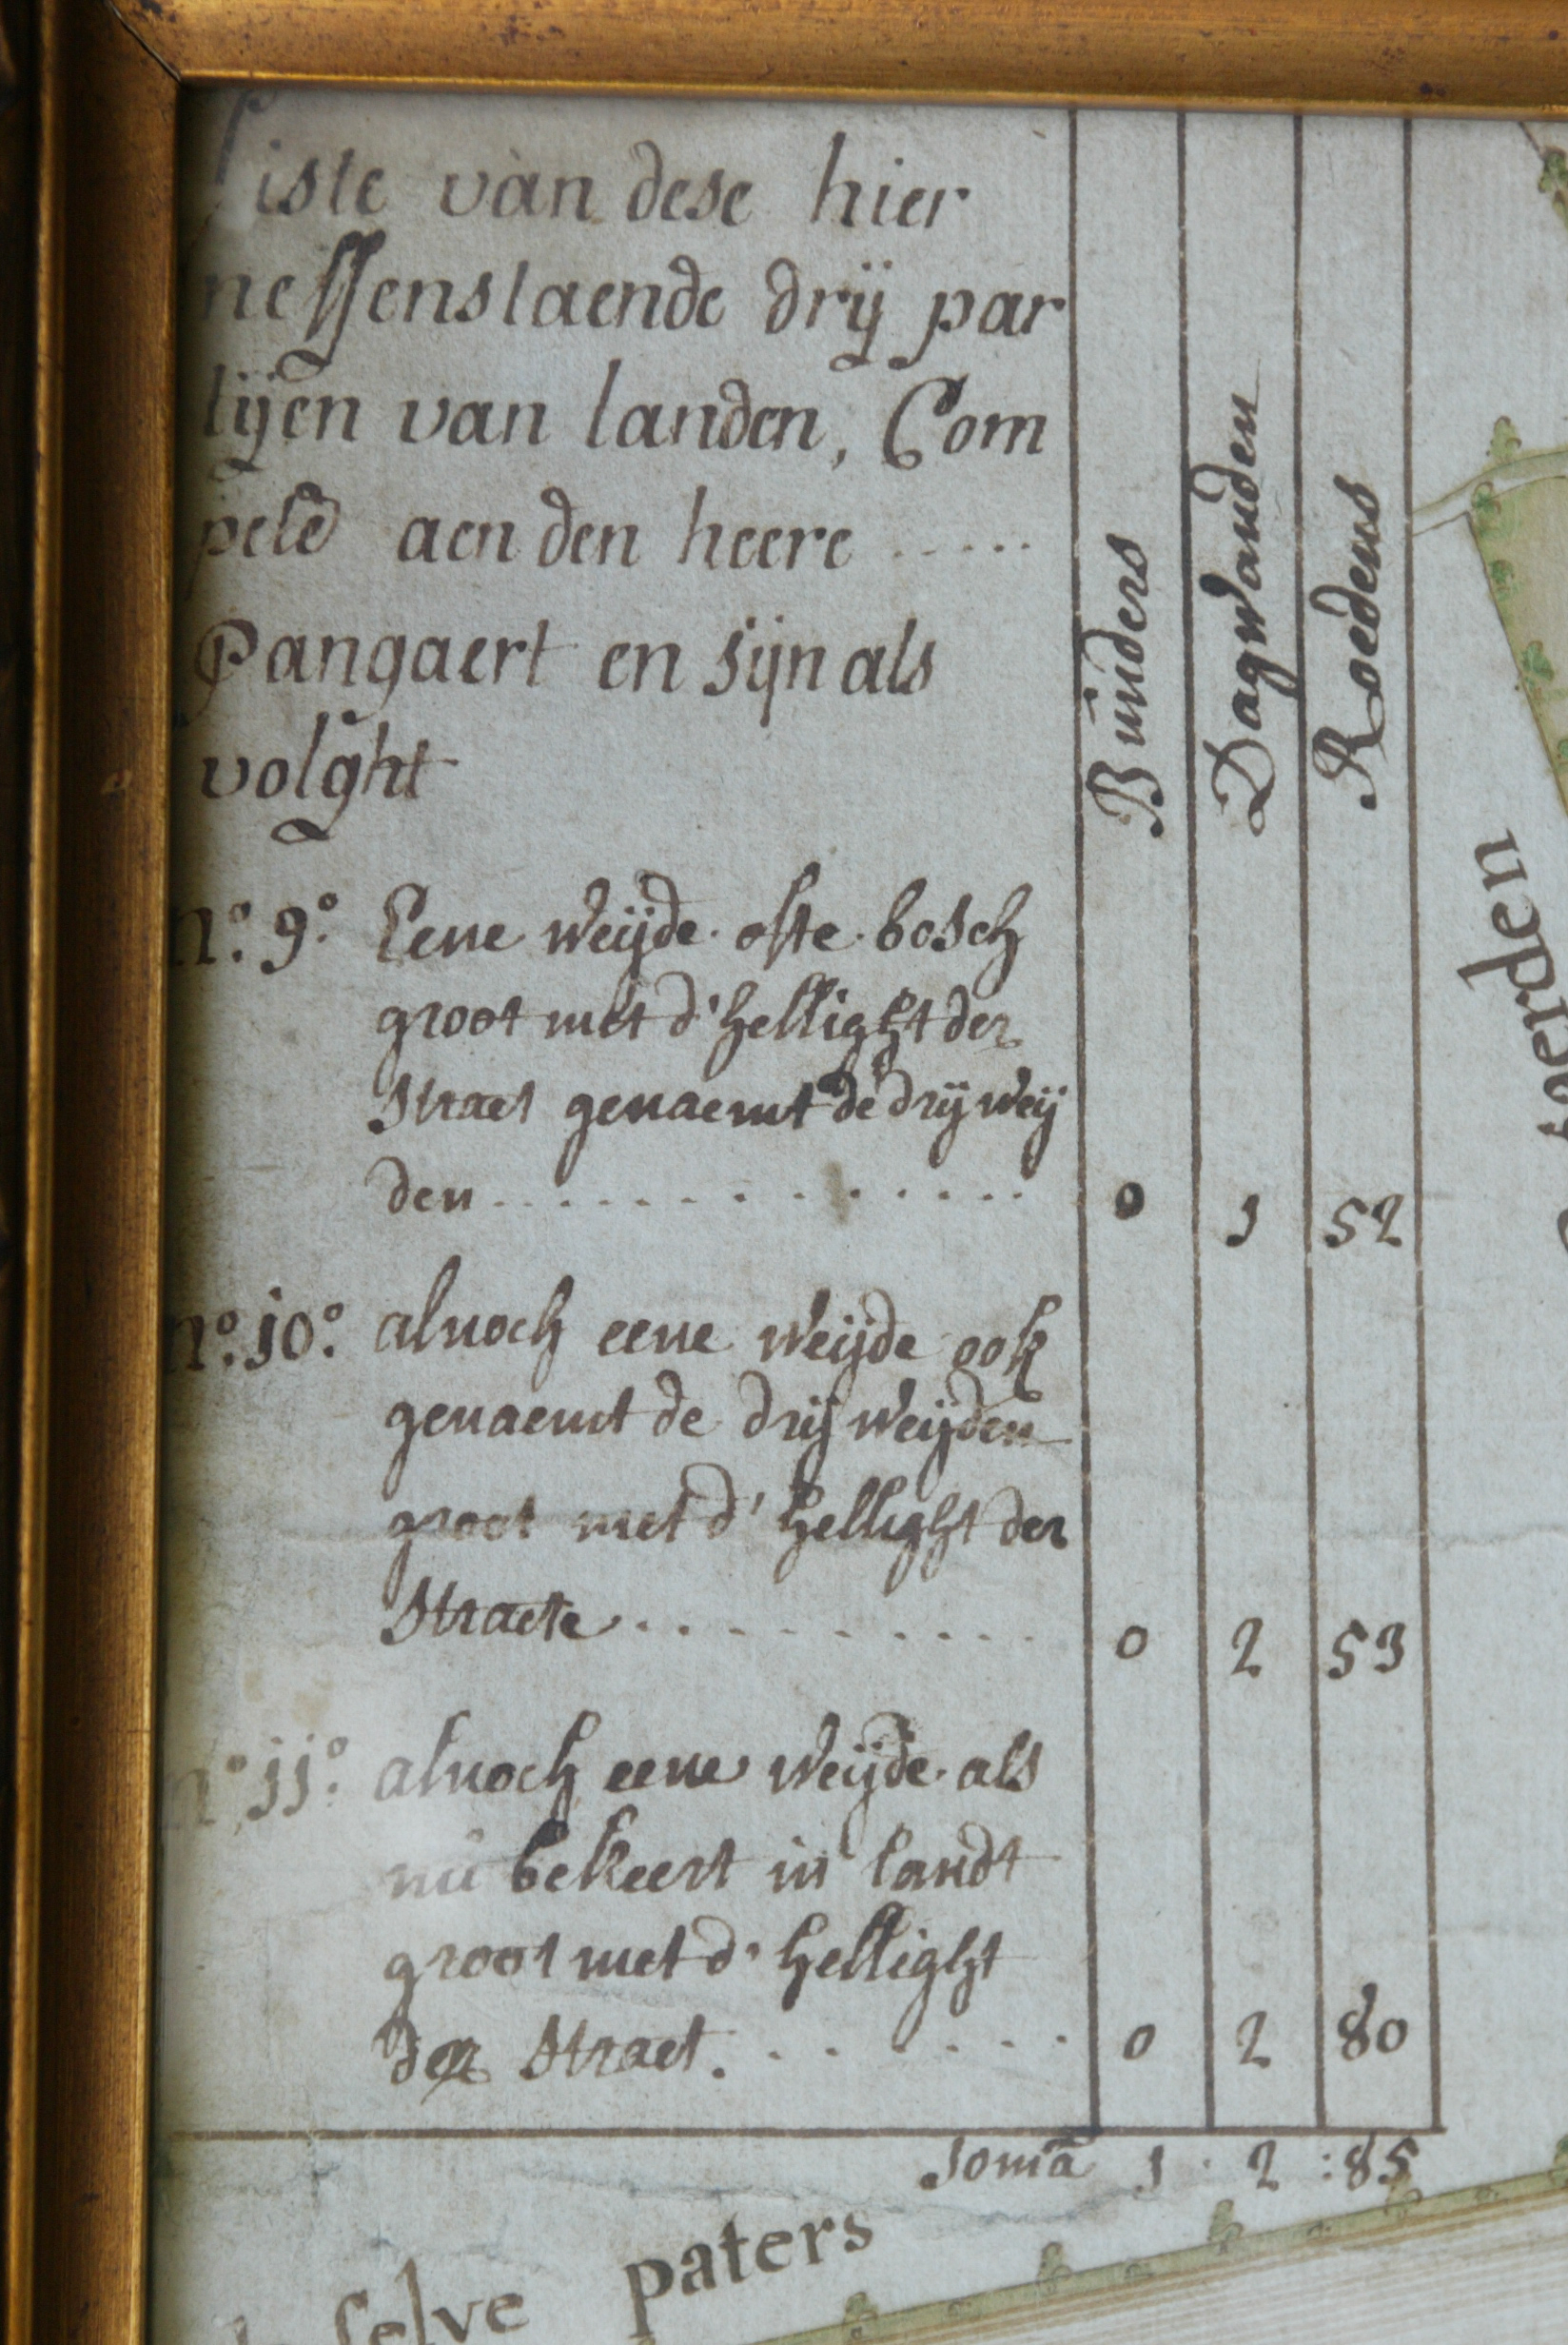 Liste van dese hier
neffenstaende drij par
tijen van landen, Com
peté aen den heere .....
Pangaert en sijn als
volght
Buinders
Dagwanden
Roedens
n.° 9.° Eene weijde ofte bosch
groot met d'hellight der
Straet genaemt de drij weij
den..............
0 1 52
n.° 10.° alnoch eene weijde ook
genaemt de drij weijden
groot met d'hellight der
Straete...........
0 2 53
n.° 11.° alnoch eene weijde als
nu bekeert in landt
groot met d'hellight
der Straet........
0 2 80
Somā 1 · 2 : 85
selve paters